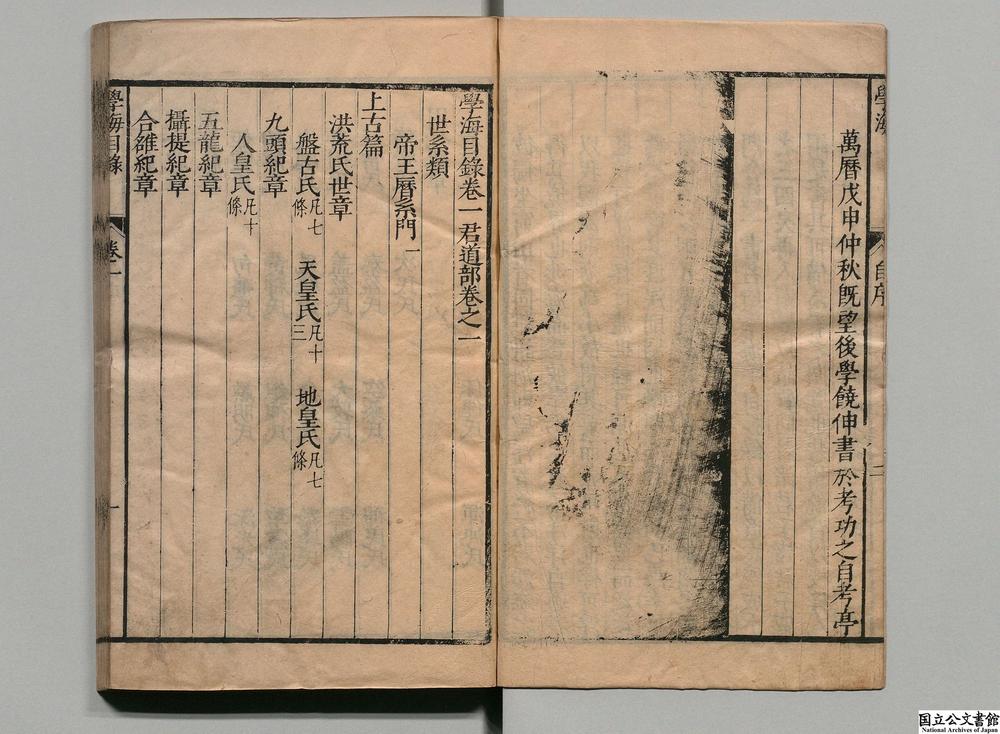 學海
自序
二
萬曆戊申仲秋旣望後學饒伸書於考功之自考亭
學海目錄卷一君道部卷之一
世系類
帝王曆系門一
上古篇
洪荒氏世章
盤古氏凡七條 天皇氏凡十三 地皇氏凡七條
九頭紀章
人皇氏凡十條
五龍紀章
攝提紀章
合雒紀章
學海目錄
卷一
一
国立公文書館
National Archives of Japan